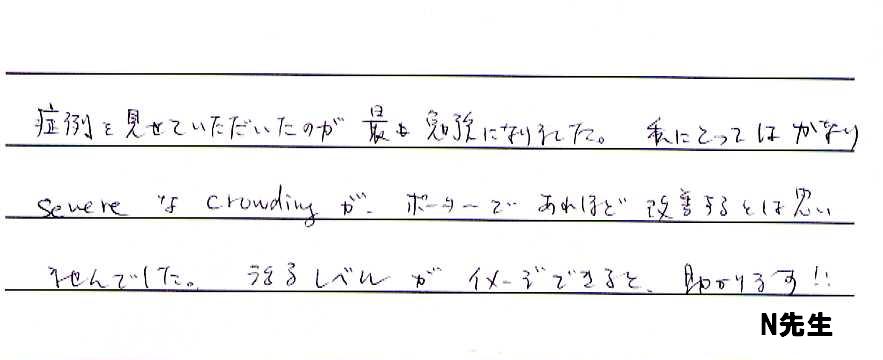 症例を見せていただいたのが最も勉強になりました。私にとってはかなり
severeなcrowdingが、ポーターであれほど改善するとは思い
ませんでした。治るレベルがイメージできると、助かります!!
N先生